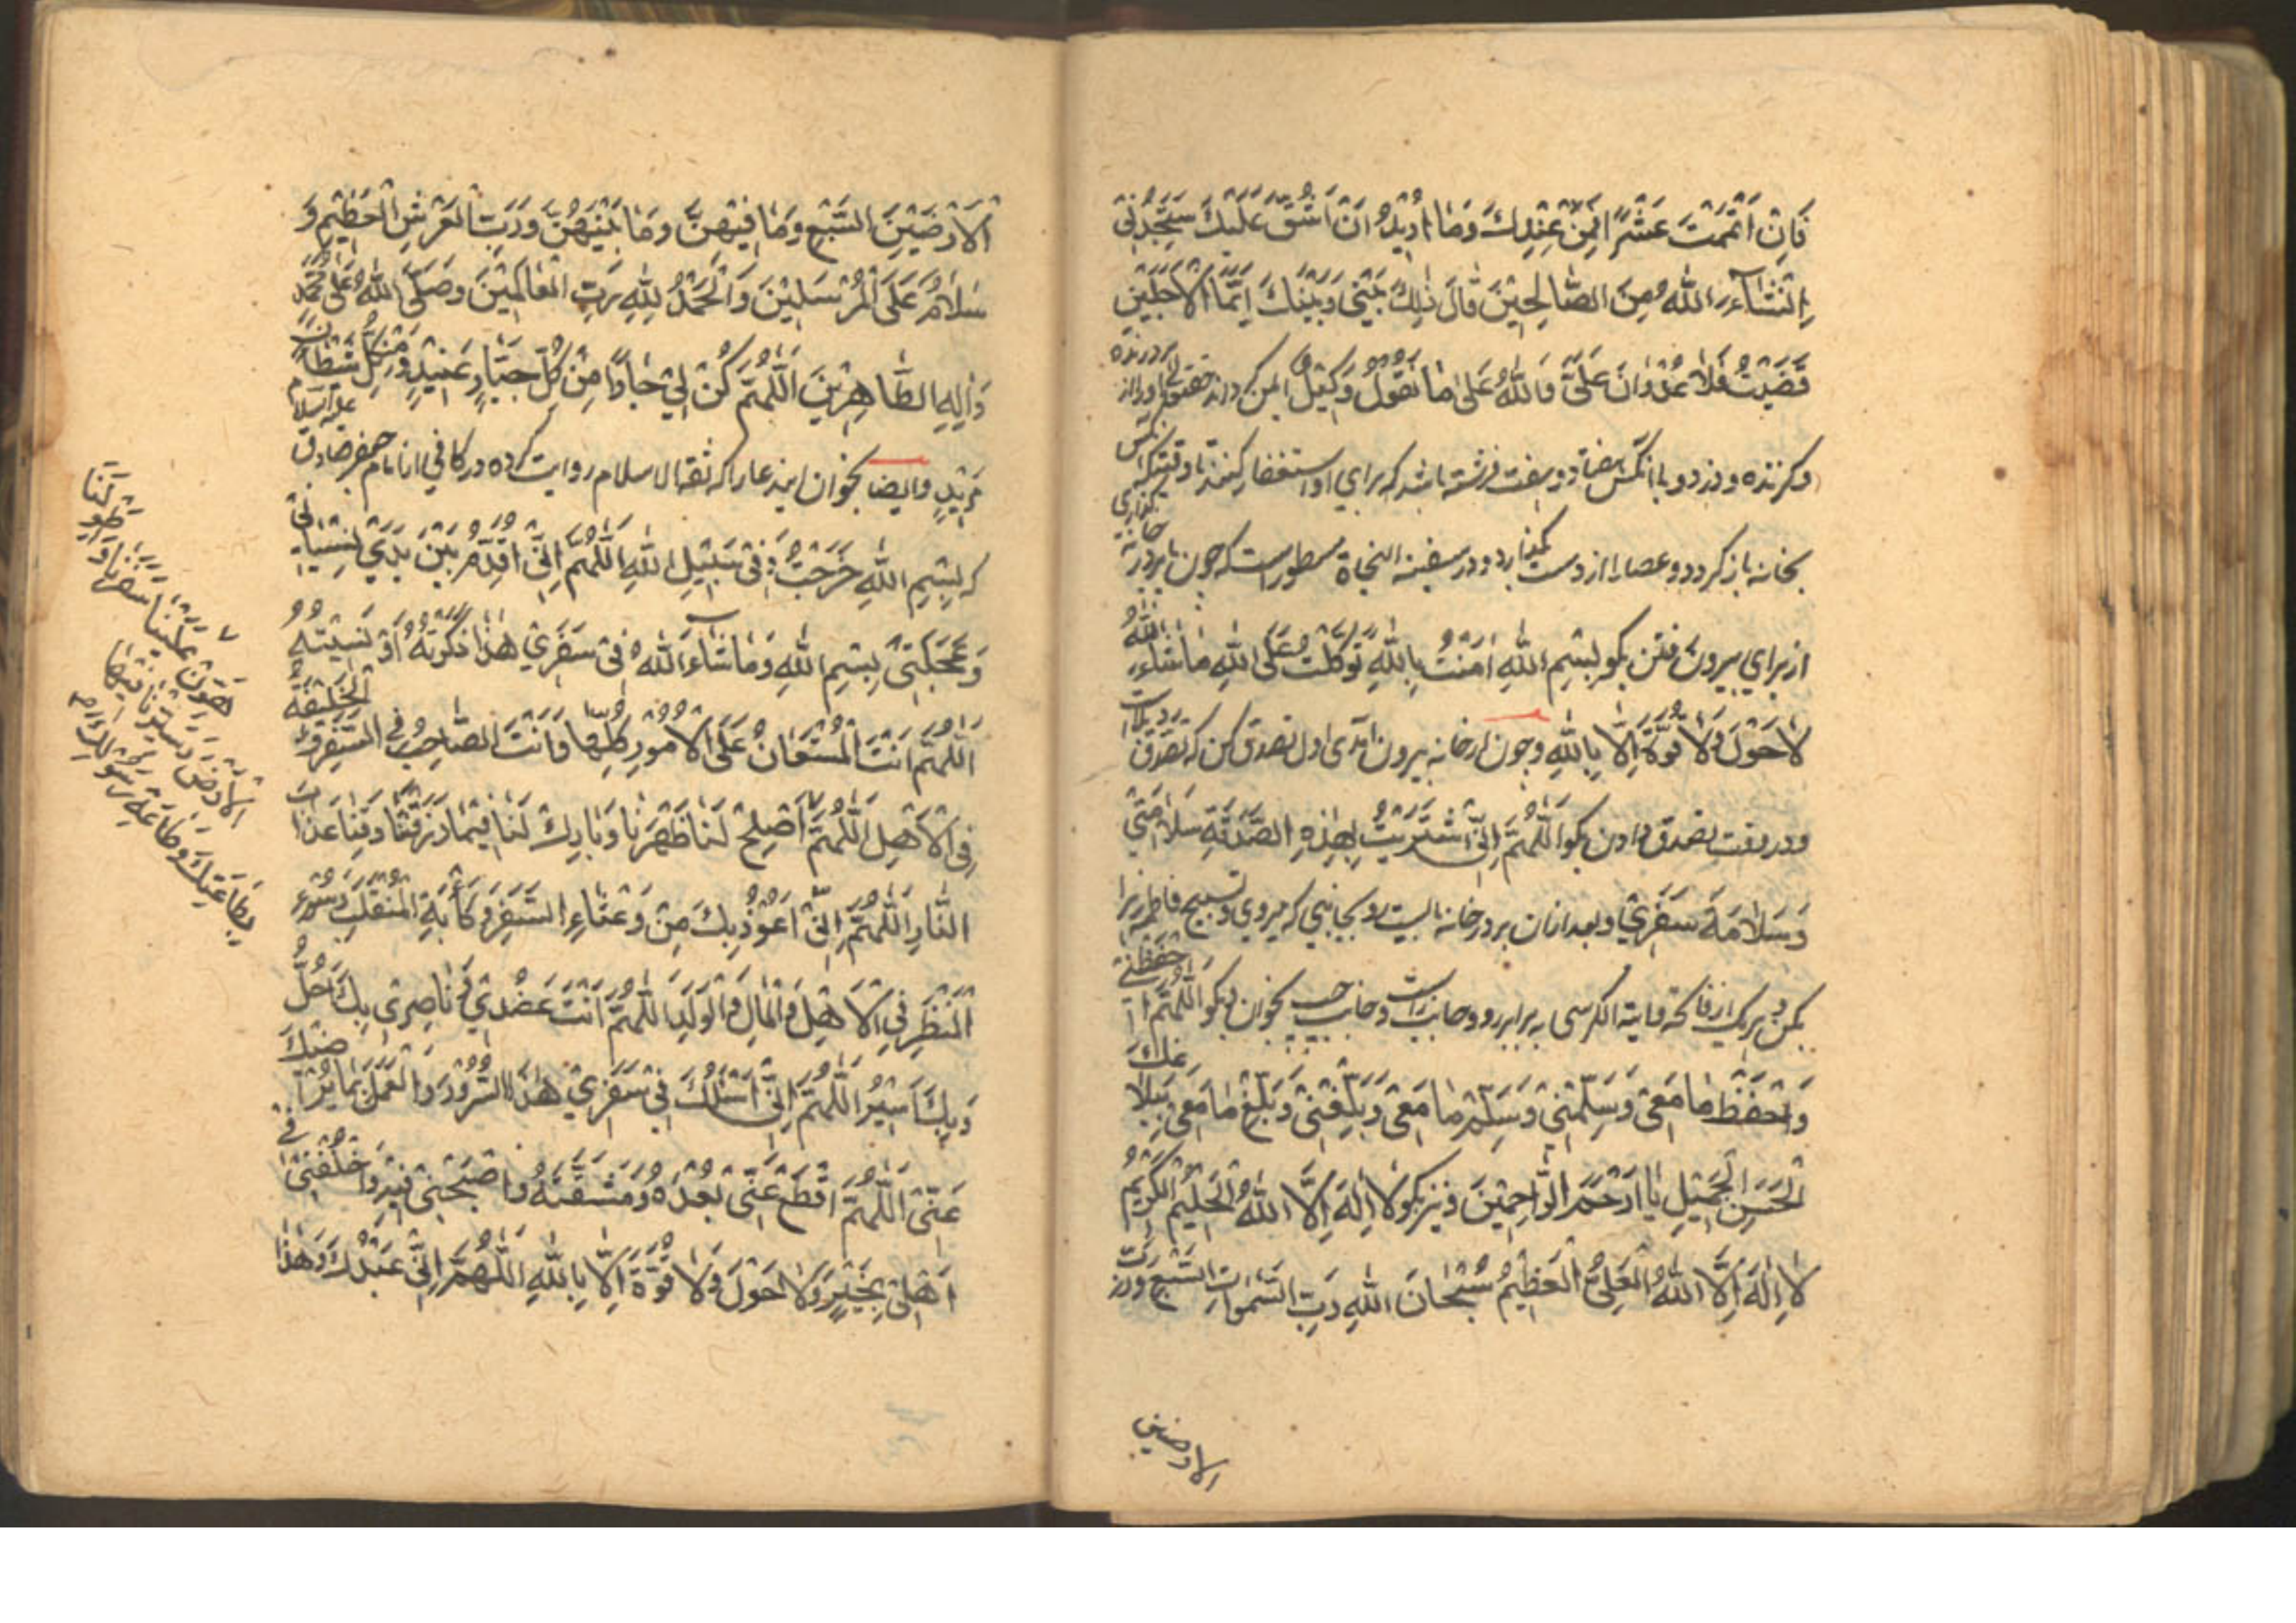 فَاِنْ اَتْمَمْتَ عَشْرًا فَمِنْ عِنْدِكَ وَمَا اُرِيْدُ اَنْ اَشُقَّ عَلَيْكَ سَتَجِدُنِيْ
اِنْشَآءَ اللّٰهُ مِنَ الصَّالِحِيْنَ قَالَ ذٰلِكَ بَيْنِيْ وَبَيْنَكَ اَيَّمَا الْاَجَلَيْنِ
قَضَيْتُ فَلَا عُدْوَانَ عَلَيَّ وَاللّٰهُ عَلٰى مَا نَقُوْلُ وَكِيْلٌ ايمن درنده
وكزنده ودزد وبا انكس هفتاد وهفت فرشته باشد كه براى او استغفار كنند تا وقتيكه انكس
بخانه باز كردد وعصا را از دست بگذارد ودر سفينة النجاة مسطور است كه چون بر در خانه
از براي بيرون رفتن بكو بِسْمِ اللّٰهِ اٰمَنْتُ بِاللّٰهِ تَوَكَّلْتُ عَلَى اللّٰهِ مَاشَآءَ اللّٰهُ
لَا حَوْلَ وَلَا قُوَّةَ اِلَّا بِاللّٰهِ وچون از خانه بيرون آمدى اول تصدق كن كه تصدق
ودر وقت تصدق دادن بكو اَللّٰهُمَّ اِنِّيْ اشْتَرَيْتُ بِهٰذِهِ الصَّدَقَةِ سَلَامَتِيْ
وَسَلَامَةَ سَفَرِيْ وبعد ازان بر در خانه بايست رو بجانبي كه ميروي وتسبيح فاطمه زهرا
وهر يك از فاتحه واية الكرسى برابر رو وجانب راست وجانب چپ بخوان وبكو اَللّٰهُمَّ احْفَظْنِيْ
وَاحْفَظْ مَا مَعِيْ وَسَلِّمْنِيْ وَسَلِّمْ مَا مَعِيْ وَبَلِّغْنِيْ وَبَلِّغْ مَا مَعِيْ بِبَلَاغِكَ
الْحَسَنِ الْجَمِيْلِ يَا اَرْحَمَ الرَّاحِمِيْنَ ونيز بكو لَا اِلٰهَ اِلَّا اللّٰهُ الْحَلِيْمُ الْكَرِيْمُ
لَا اِلٰهَ اِلَّا اللّٰهُ الْعَلِيُّ الْعَظِيْمُ سُبْحَانَ اللّٰهِ رَبِّ السَّمٰوَاتِ السَّبْعِ وَرَبِّ
الارضين
الْاَرَضِيْنَ السَّبْعِ وَمَا فِيْهِنَّ وَمَا بَيْنَهُنَّ وَرَبِّ الْعَرْشِ الْعَظِيْمِ وَ
سَلَامٌ عَلَى الْمُرْسَلِيْنَ وَالْحَمْدُ لِلّٰهِ رَبِّ الْعَالَمِيْنَ وَصَلَّى اللّٰهُ عَلٰى مُحَمَّدٍ
وَاٰلِهِ الطَّاهِرِيْنَ اَللّٰهُمَّ كُنْ لِيْ جَارًا مِنْ كُلِّ جَبَّارٍ عَنِيْدٍ وَمِنْ كُلِّ شَيْطَانٍ
مَرِيْدٍ وايضا بخوان ايندعا را كه ثقة الاسلام روايت كرده در كافي از امام جعفر صادق عليه السلام
كه بِسْمِ اللّٰهِ خَرَجْتُ وَفِيْ سَبِيْلِ اللّٰهِ اَللّٰهُمَّ اِنِّيْ اُقَدِّمُ بَيْنَ يَدَيْ نِسْيَانِيْ
وَعَجَلَتِيْ بِسْمِ اللّٰهِ وَمَاشَآءَ اللّٰهُ فِيْ سَفَرِيْ هٰذَا ذَكَرْتُهُ اَوْ نَسِيْتُهُ
اَللّٰهُمَّ اَنْتَ الْمُسْتَعَانُ عَلَى الْاُمُوْرِ كُلِّهَا وَاَنْتَ الصَّاحِبُ فِي السَّفَرِ وَالْخَلِيْفَةُ
فِي الْاَهْلِ اَللّٰهُمَّ اَصْلِحْ لَنَا ظَهْرَنَا وَبَارِكْ لَنَا فِيْمَا رَزَقْتَنَا وَقِنَا عَذَابَ
النَّارِ اَللّٰهُمَّ اِنِّيْ اَعُوْذُ بِكَ مِنْ وَعْثَاءِ السَّفَرِ وَكَأٰبَةِ الْمُنْقَلَبِ وَسُوْءِ
الْمَنْظَرِ فِي الْاَهْلِ وَالْمَالِ وَالْوَلَدِ اَللّٰهُمَّ اَنْتَ عَضُدِيْ وَنَاصِرِيْ بِكَ اَحُلُّ
وَبِكَ اَسِيْرُ اَللّٰهُمَّ اِنِّيْ اَسْئَلُكَ فِيْ سَفَرِيْ هٰذَا السُّرُوْرَ وَالْعَمَلَ بِمَا يُرْضِيْكَ
عَنِّيْ اَللّٰهُمَّ اقْطَعْ عَنِّيْ بُعْدَهُ وَمَشَقَّتَهُ وَاصْحَبْنِيْ فِيْهِ وَاخْلُفْنِيْ فِيْ
اَهْلِيْ بِخَيْرٍ وَلَا حَوْلَ وَلَا قُوَّةَ اِلَّا بِاللّٰهِ اَللّٰهُمَّ اِنِّيْ عَبْدُكَ وَهٰذَا
هَوِّنْ عَلَيْنَا سَفَرَنَا وَاطْوِ لَنَا
الْاَرْضَ وَسَيِّرْنَا فِيْهَا
بِطَاعَتِكَ وَطَاعَةِ رَسُوْلِكَ